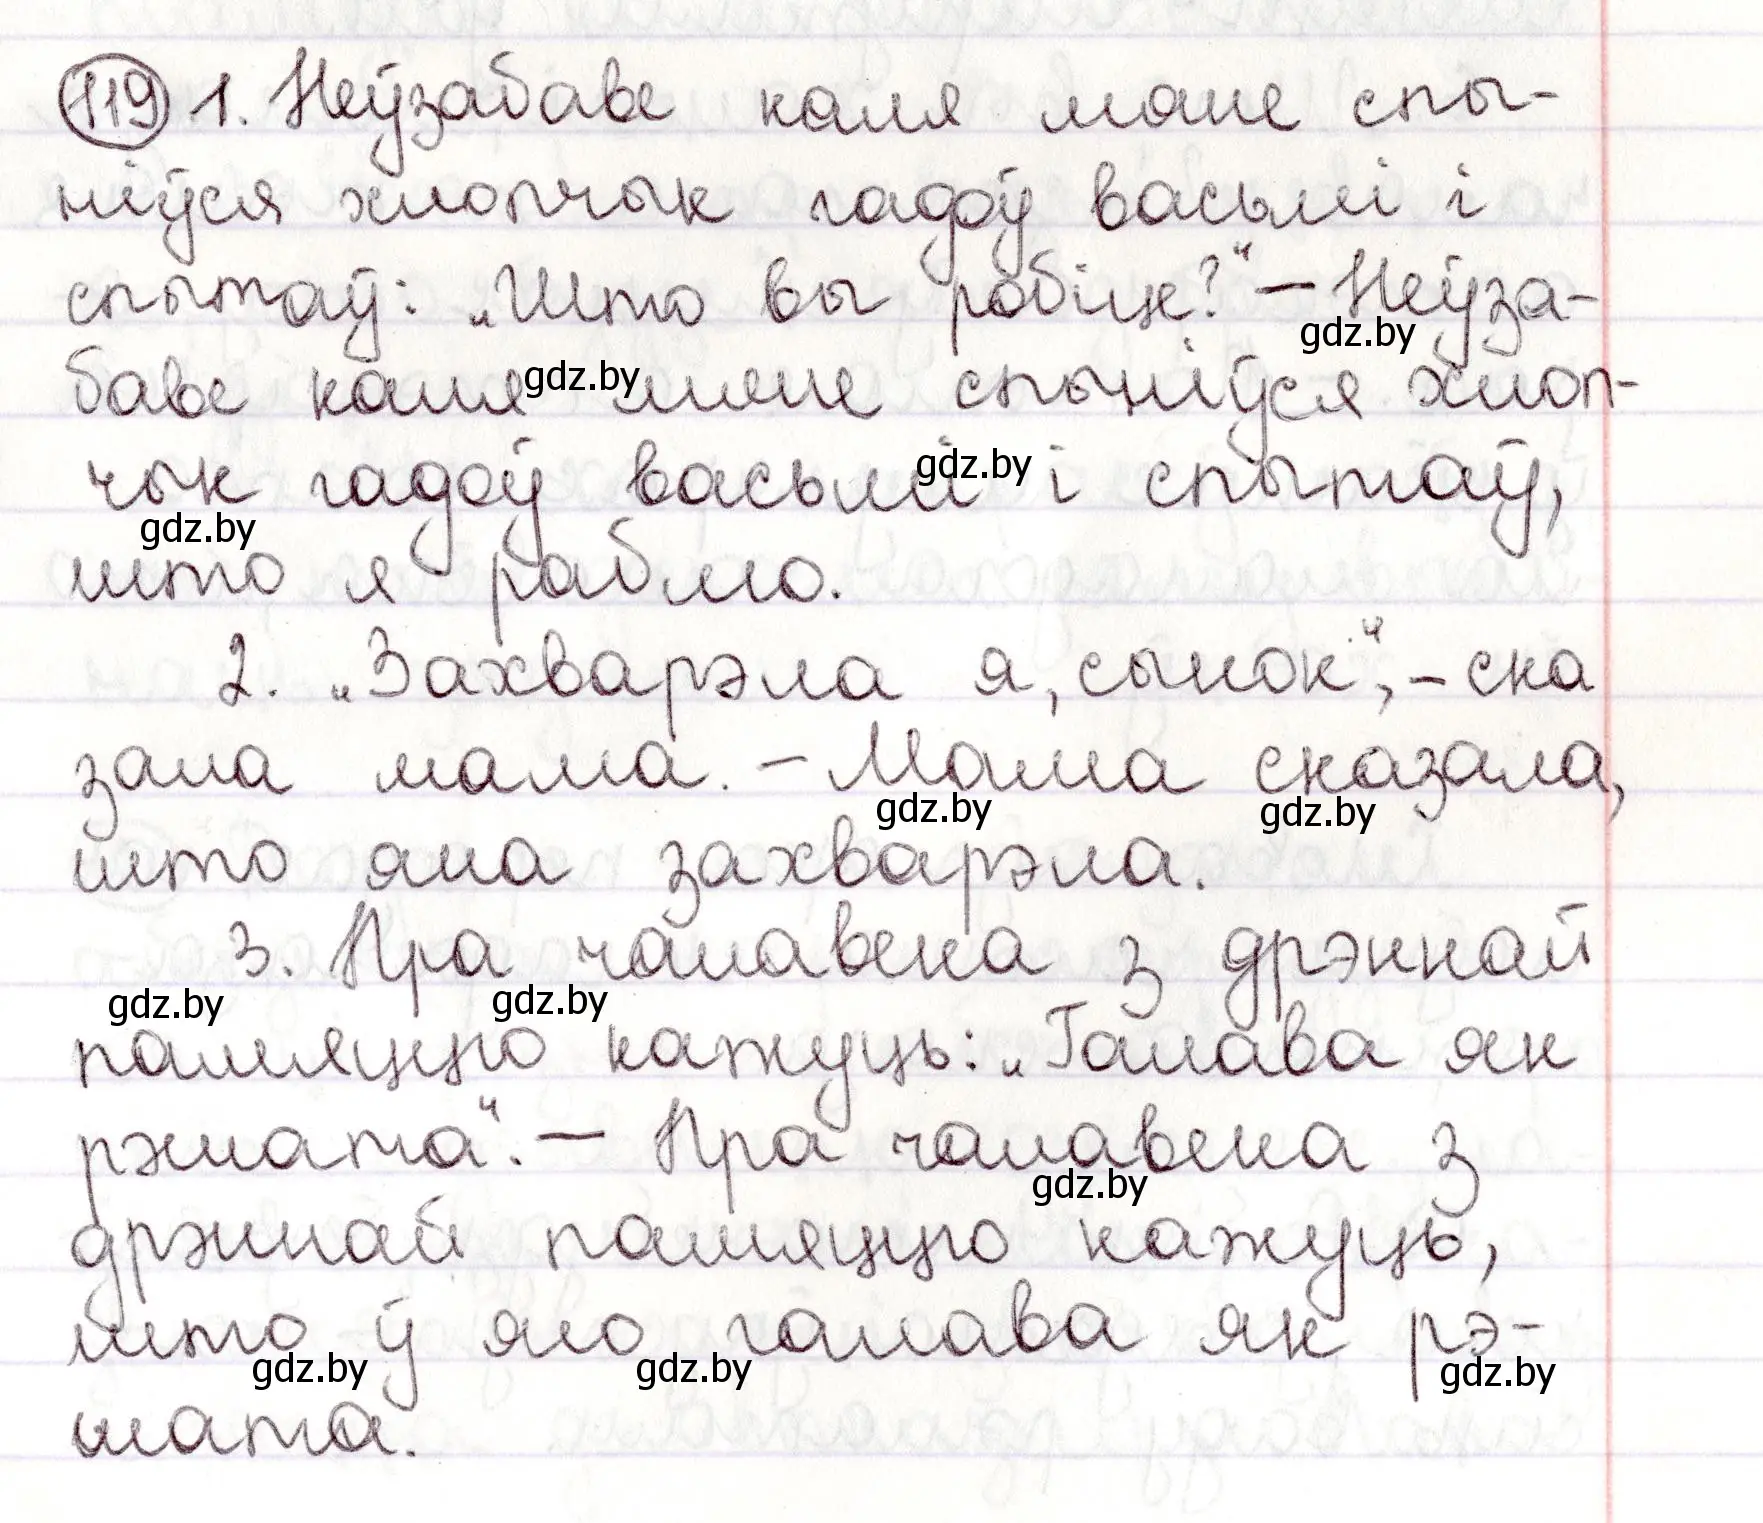 119 1. Неўзабаве каля мяне спы-
ніўся хлопчык гадоў васьмі і
спытаў: „Што вы робіце?“ – Неўза-
баве каля мяне спыніўся хлоп-
чык гадоў васьмі і спытаў,
што я раблю.
2. „Захварэла я, сынок“, – ска
зала мама. – Мама сказала,
што яна захварэла.
3. Пра чалавека з дрэннай
памяццю кажуць: „Галава як
рэшата“. – Пра чалавека з
дрэннай памяццю кажуць,
што ў яго галава як рэ-
шата.
gdz.by
gdz.by
gdz.by
gdz.by
gdz.by
gdz.by
gdz.by
gdz.by
gdz.by
gdz.by
gdz.by
gdz.by